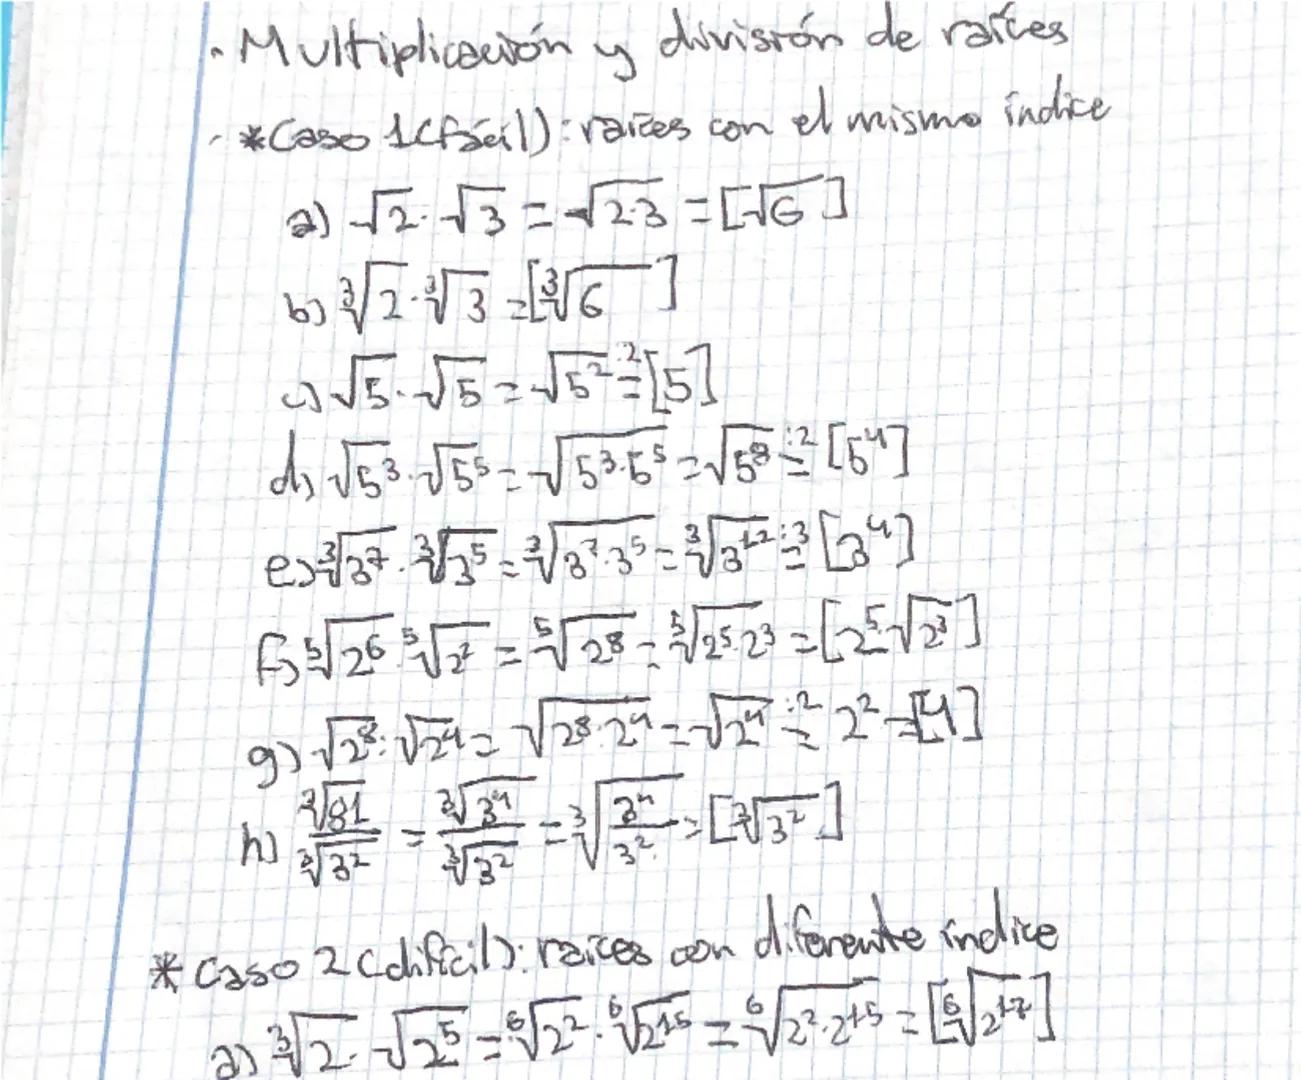 · Multiplicación y división de raíces
- *Caso 1(fácil): raíces con el mismo índice
a) √2 · √3 = √2·3 = [√6]
b) ³√2 · ³√3 = [³√6]
c) √5 · √5 = √5² :2= [5]
d) √5³ · √5⁵ = √5³·5⁵ = √5⁸ :2= [5⁴]
e) ³√3⁷ · ³√3⁵ = ³√3⁷·3⁵ = ³√3¹² :3= [3⁴]
f) ⁵√2⁶ · ⁵√2² = ⁵√2⁸ = ⁵√2⁵·2³ = [2 ⁵√2³]
g) √2⁸ : √2⁴ = √2⁸·2⁴ = √2⁴ :2= 2² = [4]
h) ³√81 / ³√3² = ³√3⁴ / ³√3² = ³√(3⁴/3²) = [³√3²]
* Caso 2 (difícil): raíces con diferente índice
a) ³√2 · √2⁵ = ⁶√2² · ⁶√2¹⁵ = ⁶√2²·2¹⁵ = [⁶√2¹⁷]